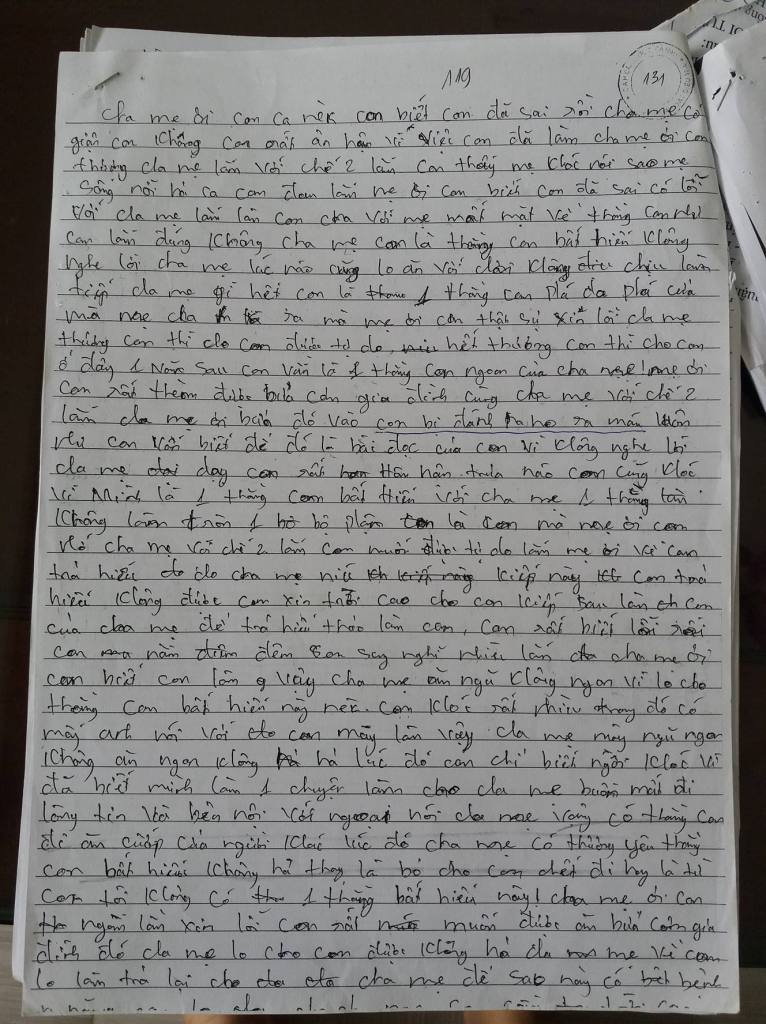 119
131
cha mẹ ơi con cả nèk con biết con đã sai rồi cha mẹ có
giận con không con rất ân hận về việc con đã làm cha mẹ ơi con
thương cha mẹ lắm với chế 2 lắm con thấy mẹ khóc nói sao mẹ
sống nỗi hả ca con đau lắm mẹ ơi con biết con đã sai có lỗi
với cha mẹ lắm lắm con cha với mẹ mất mặt về thằng con như
con lắm đúng không cha mẹ con là thằng con bất hiếu không
nghe lời cha mẹ lúc nào cũng lo ăn với chơi không chịu làm
tiếp cha mẹ gì hết con là 1 thằng con phá da phá cửa
mà mẹ cha ra mà mẹ ơi con thật sự xin lỗi cha mẹ
thương con thì cho con được tự do, hết thương con thì cho con
ở đây 1 năm sau con vẫn là 1 thằng con ngoan của cha mẹ mẹ ơi
con rất thèm được bữa cơn gia đình cùng cha mẹ với chế 2
lắm cha mẹ ơi bữa đó vào con bị đánh ho ra máu luôn
như con vẫn biết đế đó là bài đọc của con vì không nghe lời
cha mẹ dạy con rất hối hận trưa nào con cũng khóc
vì mình là 1 thằng con bất hiếu với cha mẹ 1 thằng tàn
không làm tròn 1 bộ phận là con mà mẹ ơi con
nhớ cha mẹ với chế 2 lắm con muốn được tự do lắm mẹ ơi về con
trả hiếu cho cha mẹ niếu kiếp này con trả
hiếu không được con xin trời cao cho con kiếp sau làm con
của cha mẹ để trả hiếu thảo làm con, con rất biết lỗi rồi
con nằm đêm con suy nghĩ nhiều lắm cha mẹ ơi
con biết con làm vậy cha mẹ ăn ngũ không ngon vì lo cho
thằng con bất hiếu này nèk. con khóc rất nhiều trong đó có
mấy anh nói với con mày làm vậy cha mẹ mày ngũ ngon
không ăn ngon không hả lúc đó con chỉ biết ngồi khóc vì
đã biết mình làm 1 chuyện làm cho cha mẹ buồn mất đi
lòng tin và bên nội với ngoại nói cha mẹ có thằng con
đi ăn cướp của người khác lúc đó cha mẹ có thương yêu thằng
con bất hiếu không hả hay là bỏ cho con chết đi hay là từ
con tôi không có 1 thằng bất hiếu này! cha mẹ ơi con
ngàn lần xin lỗi con rất muốn được ăn bữa cơm gia
đình đó cha mẹ lo cho con được không hả cha mẹ về con
lo làm trả lại cho cha mẹ để sao này có bệnh